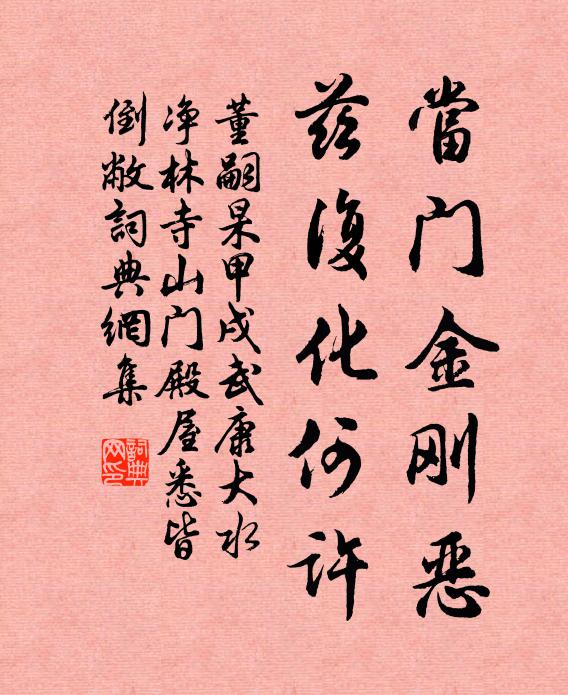 當门金刚惡
茲復化何许
董嗣杲甲戌武康大水
净林寺山门殿屋悉皆
倒敝詞典網集
詞典网印